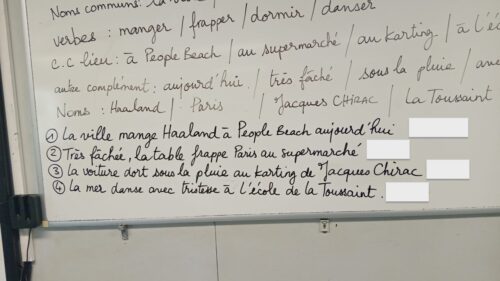 Noms communs: la vi
verbes : manger / frapper / dormir / danser
c.c lieu : à People Beach / au supermarché / au Karting / à l'é
autre complément : aujourd'hui / très fâché / sous la pluie / ave
Noms : Haaland / Paris / Jacques CHIRAC / La Toussaint
① La ville mange Haaland à People Beach aujourd'hui
② Très fâchée, la table frappe Paris au supermarché
③ La voiture dort sous la pluie au Karting de Jacques Chirac
④ La mer danse avec tristesse à l'école de la Toussaint.